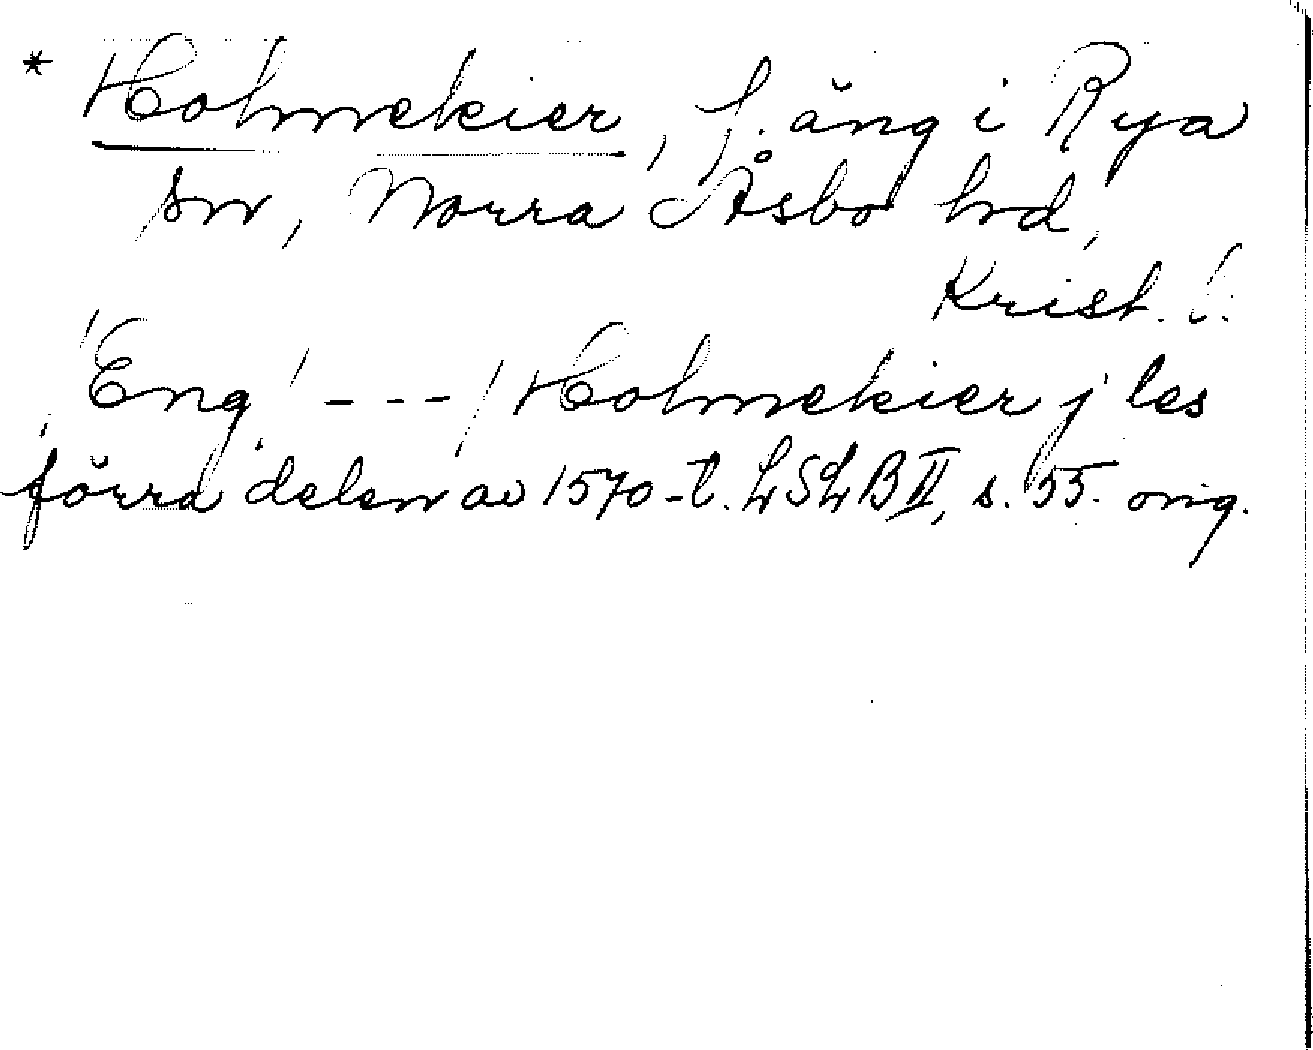 * Holmekier, f. äng i Rya
sn, Norra Åsbo hd,
Krist. l.
'Eng' --- / Holmekier j les
förra delen av 1570-t. LSLB II, s. 55. orig.